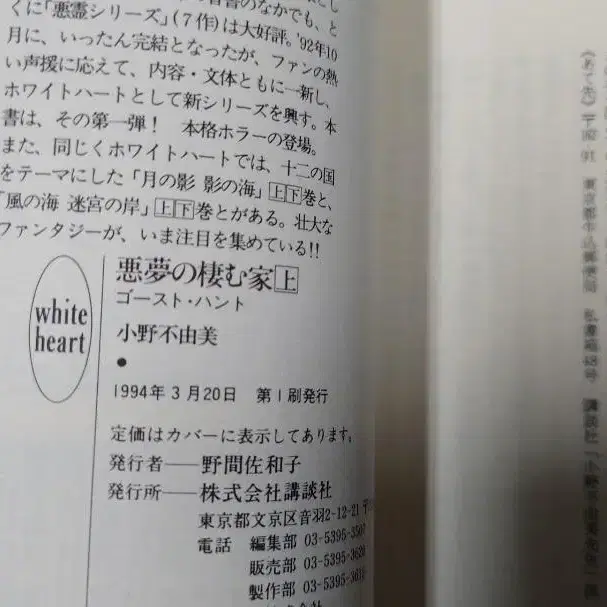 くに「悪霊シリーズ」(7作)は大好評。'92年10
月に、いったん完結となったが、ファンの熱
い声援に応えて、内容・文体ともに一新し、
ホワイトハートとして新シリーズを興す。本
書は、その第一弾! 本格ホラーの登場。
また、同じくホワイトハートでは、十二の国
をテーマにした「月の影 影の海」上下巻と、
「風の海 迷宮の岸」上下巻とがある。壮大な
ファンタジーが、いま注目を集めている!!
white
heart
悪夢の棲む家 上
ゴースト・ハント
小野不由美
●
1994年3月20日 第1刷発行
定価はカバーに表示してあります。
発行者──野間佐和子
発行所──株式会社講談社
東京都文京区音羽2-12-21 〒
電話 編集部 03-5395-3507
販売部 03-5395-
製作部 03-5395-
株式会社
《あて先》
東京都牛込郵便局 私書箱48号 講談社